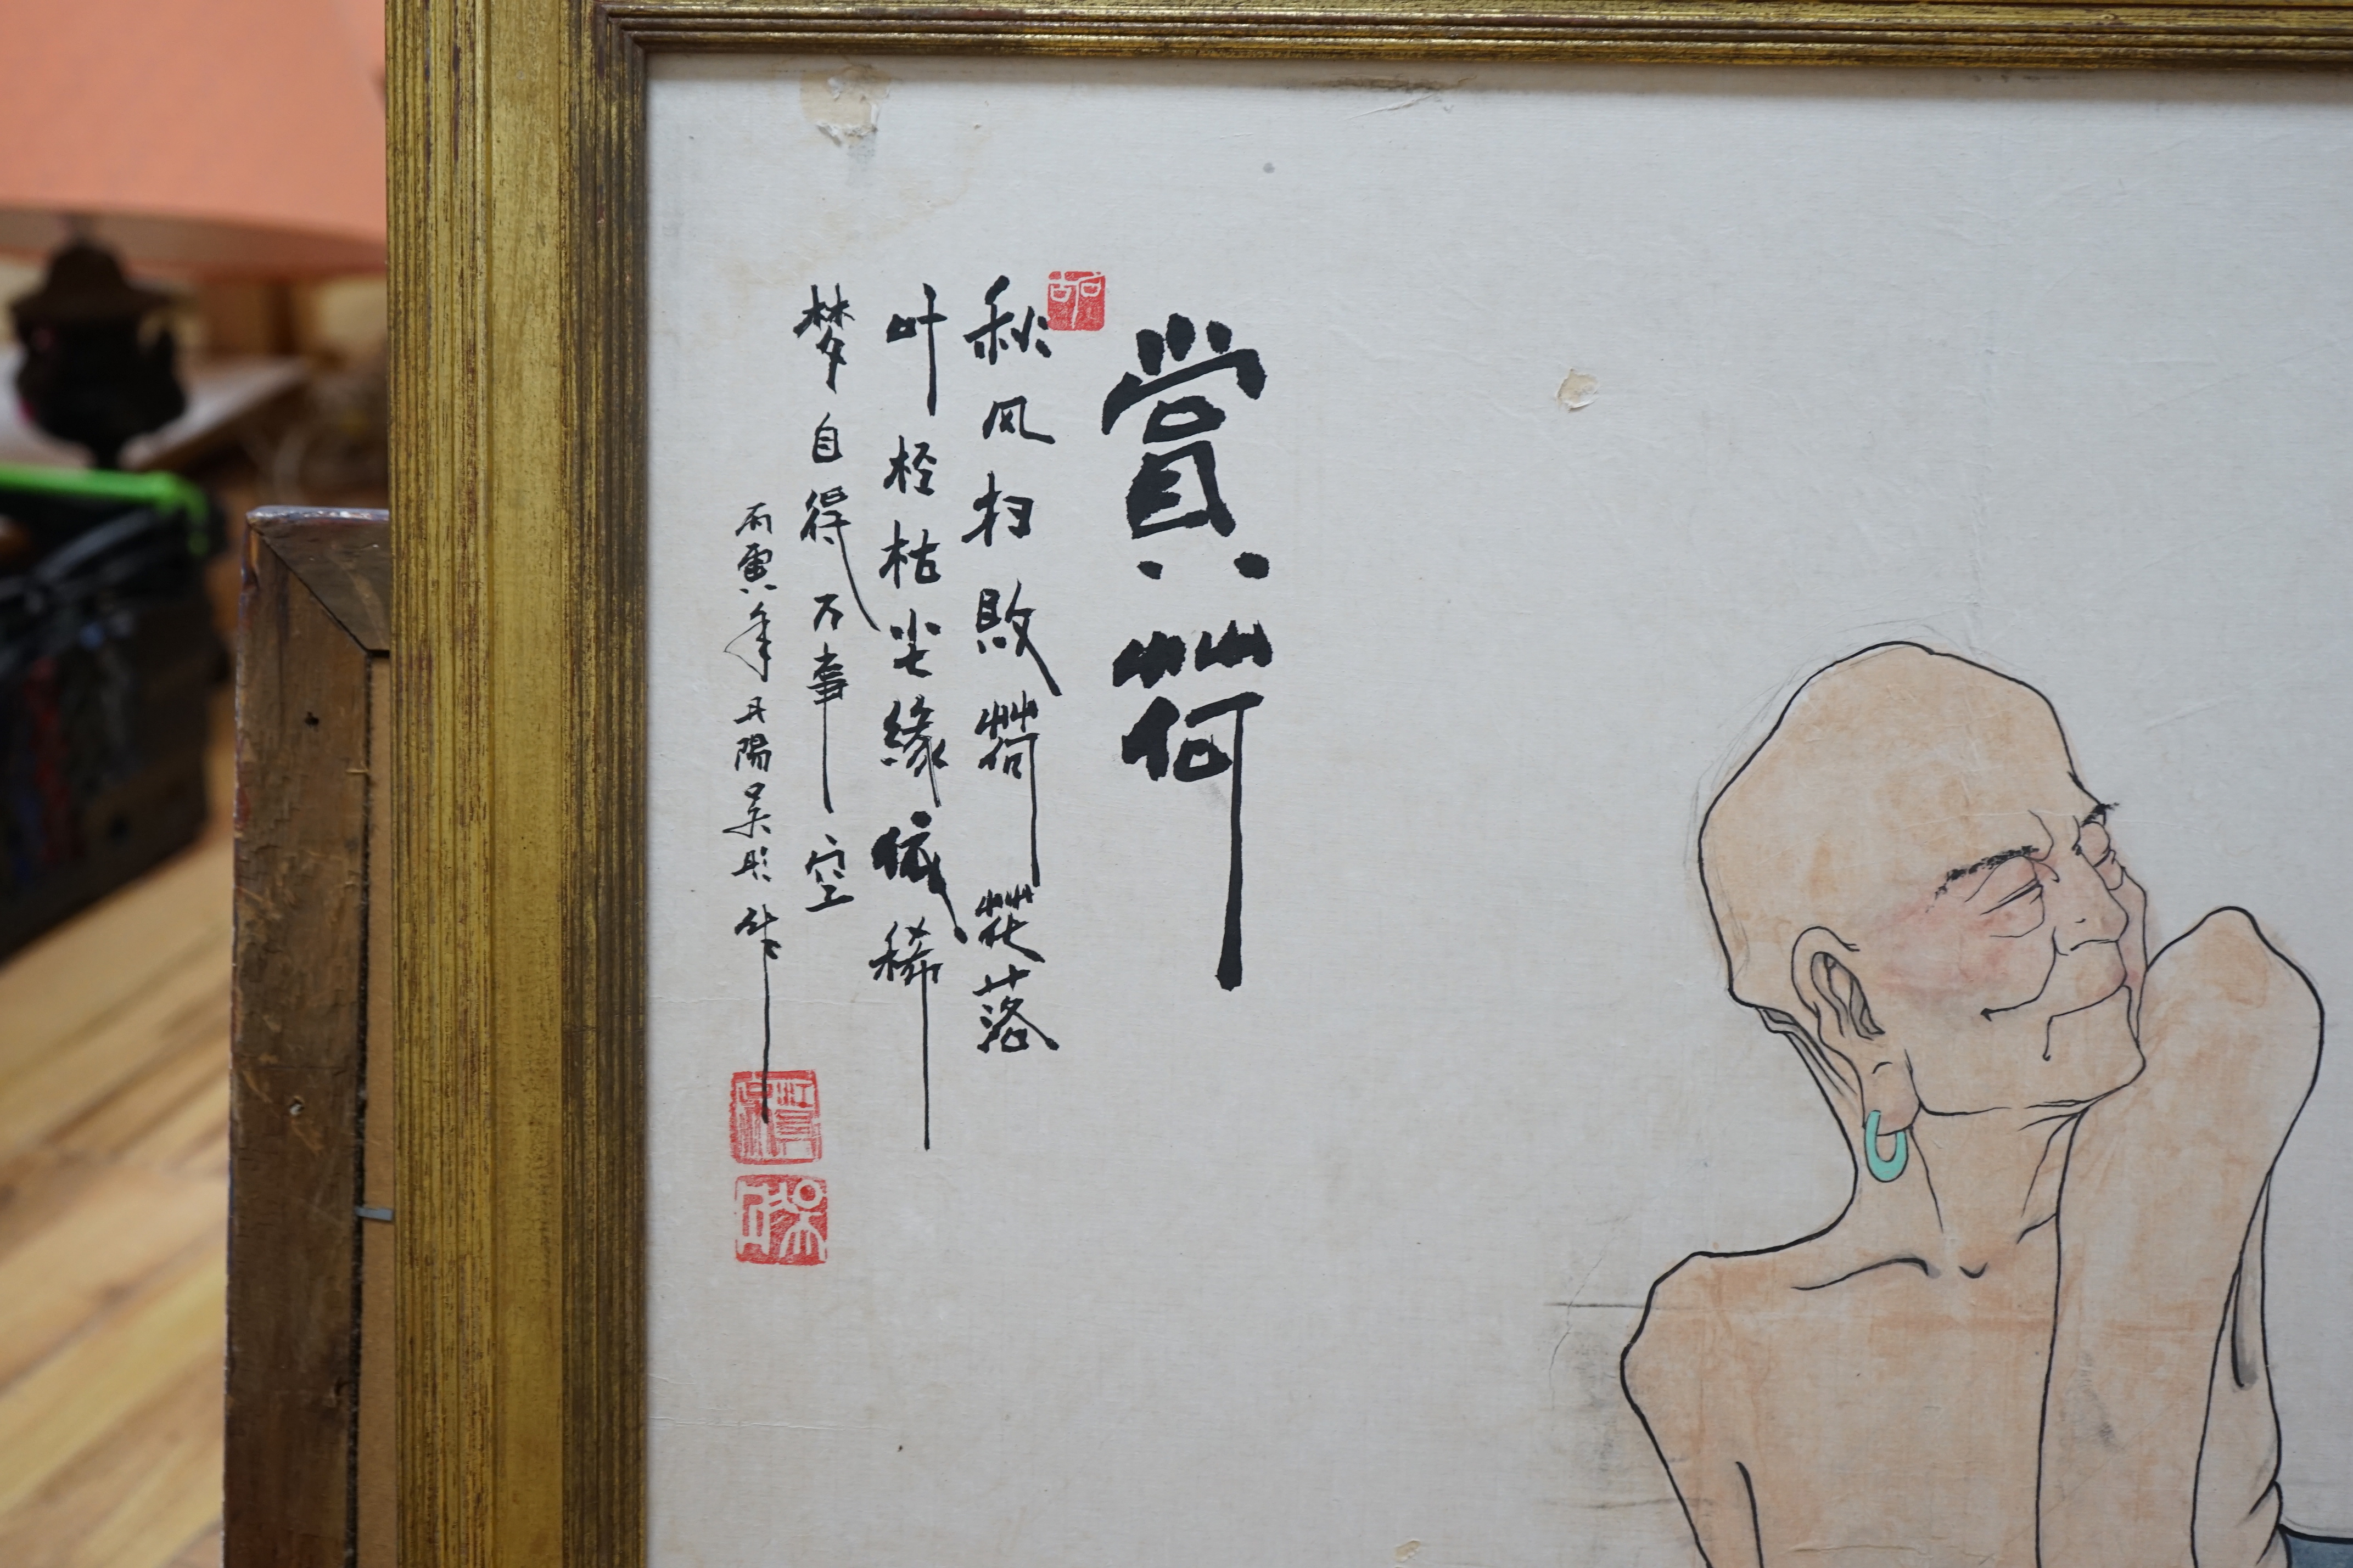 賞荷
秋风扫敗荷花落
叶柽枯尘緣依稀
梦自得万事空
丙寅年丹陽吴彤作